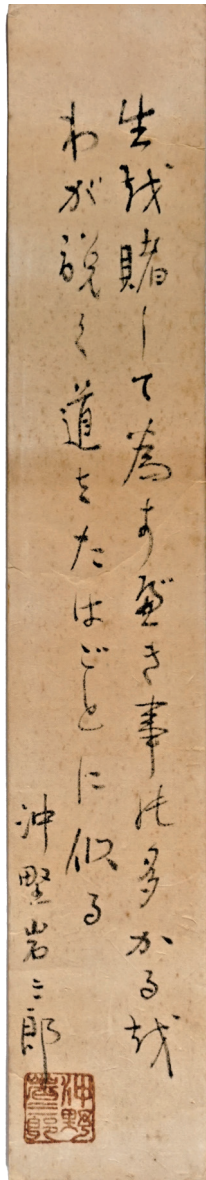 生越賭して為す可き事能多かる越
わが説く道もたはごとに似る
沖野岩三郎
沖野
岩三郎